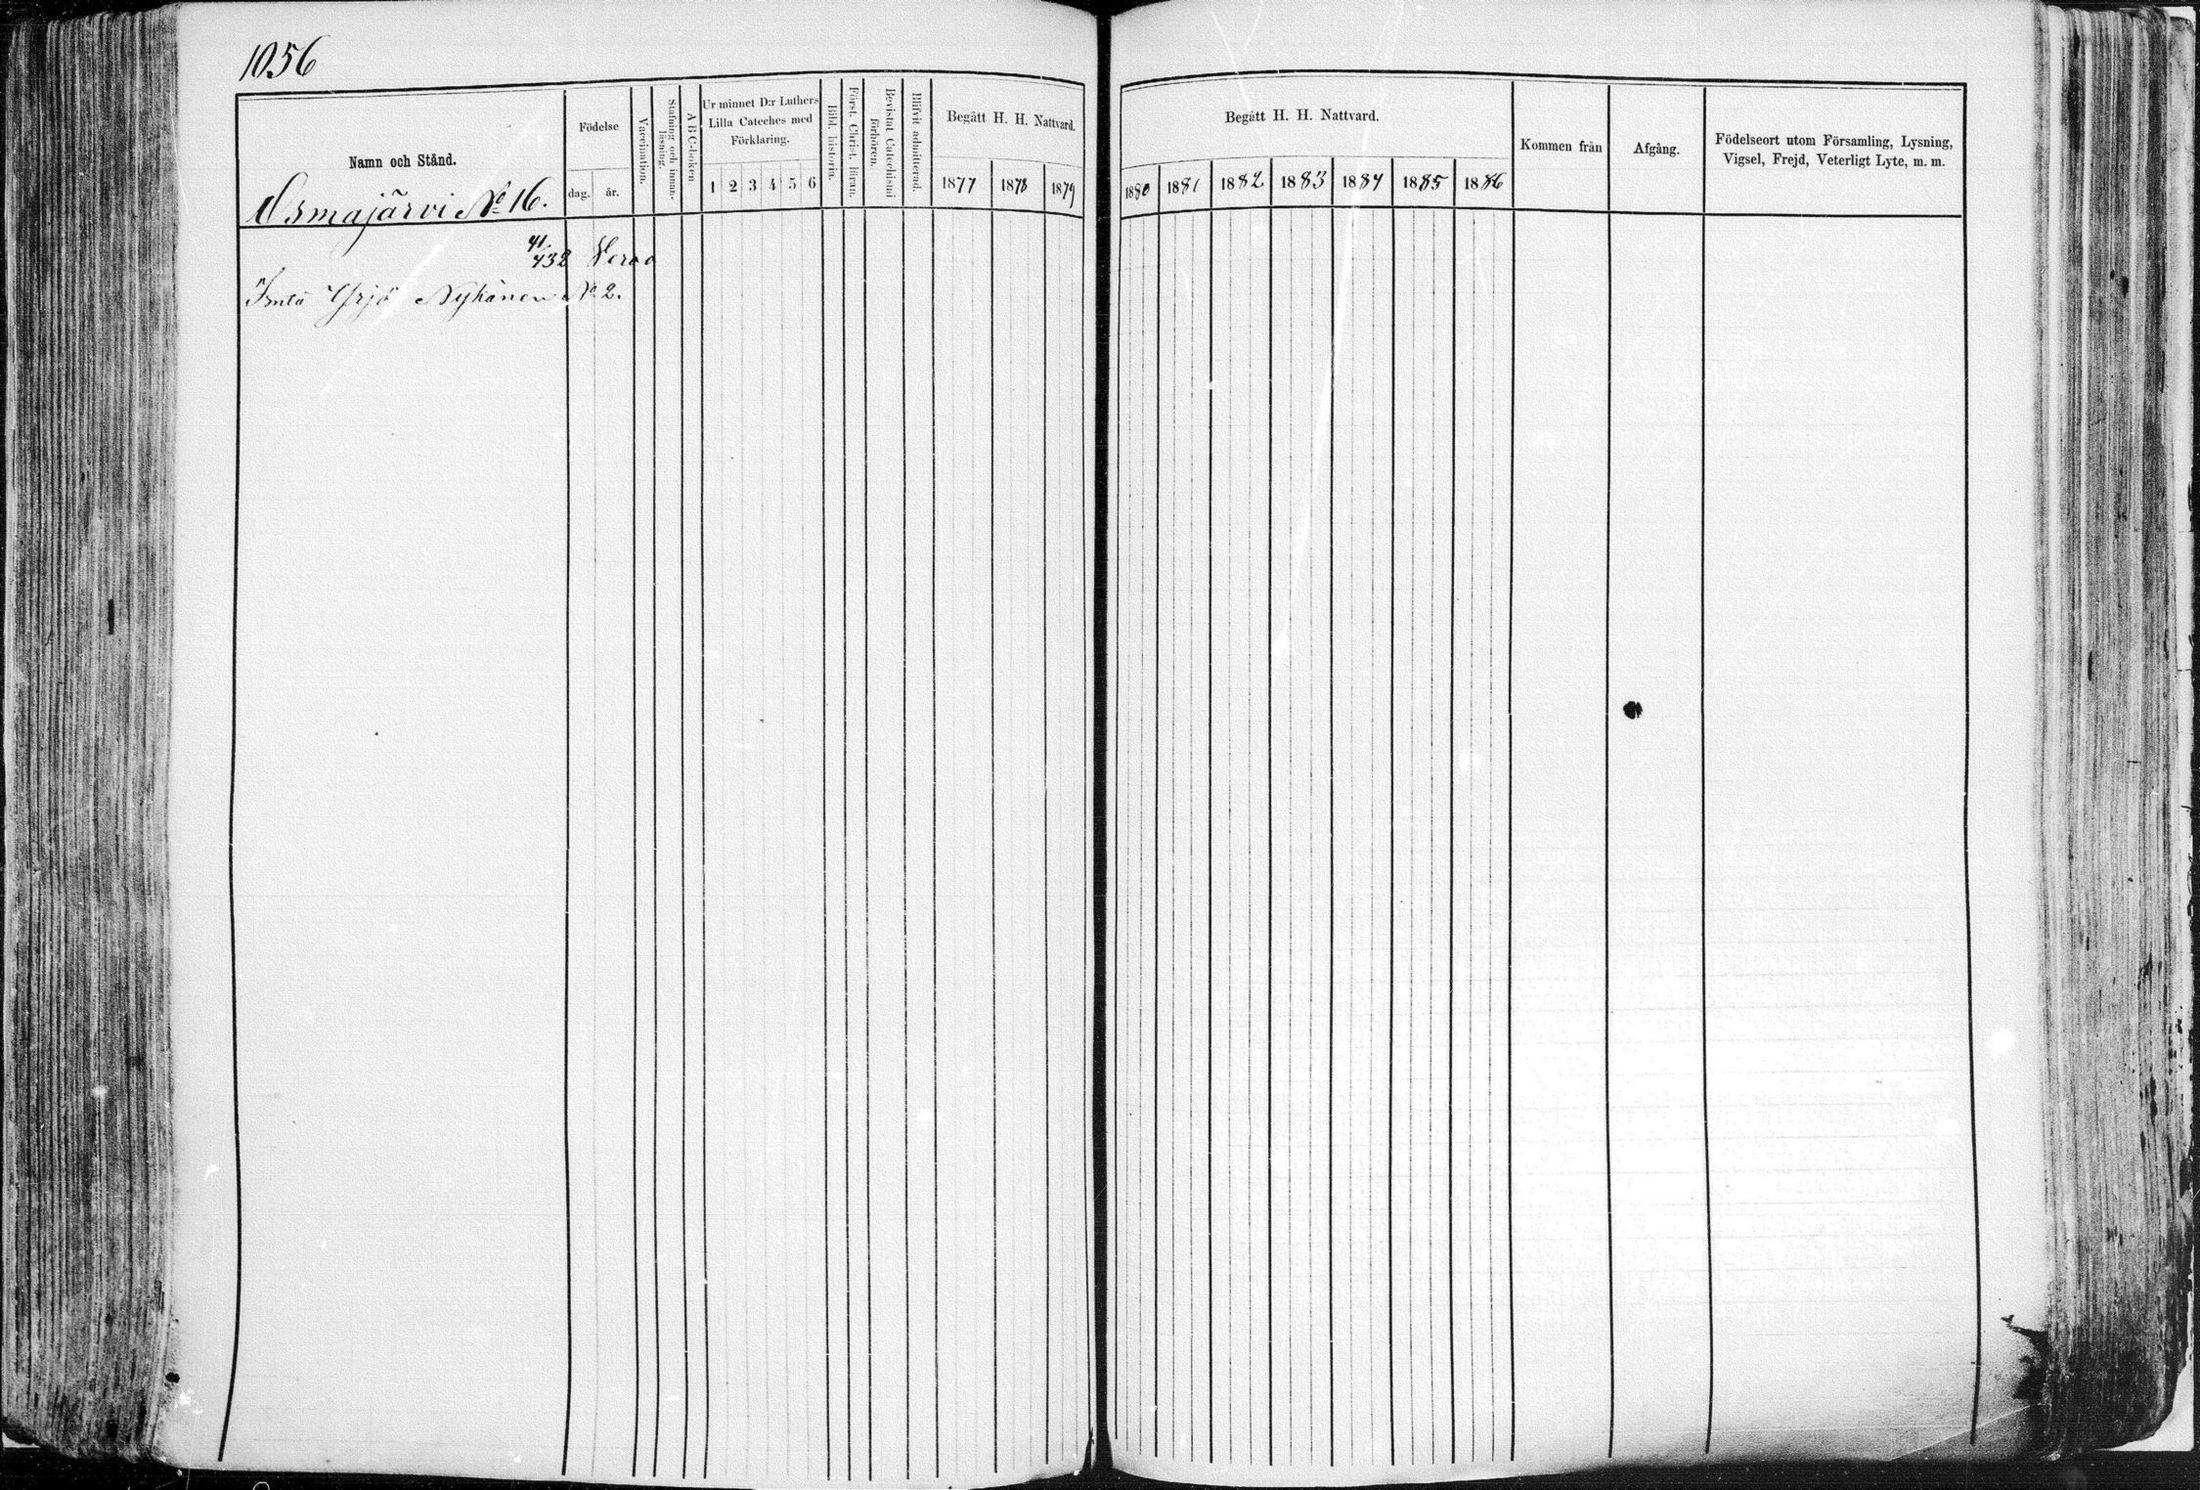 1056
Namn och Stånd.
Osmajärvi № 16.
Födelse
dag. år.
Vaccination.
Stafning och innan-läsning.
ABC-boken
Ur minnet D:r Luthers
Lilla Cateches med
Förklaring.
1 2 3 4 5 6
Bibl. historia.
Först. Christ. läran.
Bevistat Catechismi
förhören.
Blifvit admitterad.
Begått H. H. Nattvard.
1877 1878 1879
Begått H. H. Nattvard.
1880 1881 1882 1883 1884 1885 1886
Kommen från
Afgång.
Födelseort utom Församling, Lysning,
Vigsel, Frejd, Veterligt Lyte, m. m.
41/732
Yrjö Nykänen № 2.